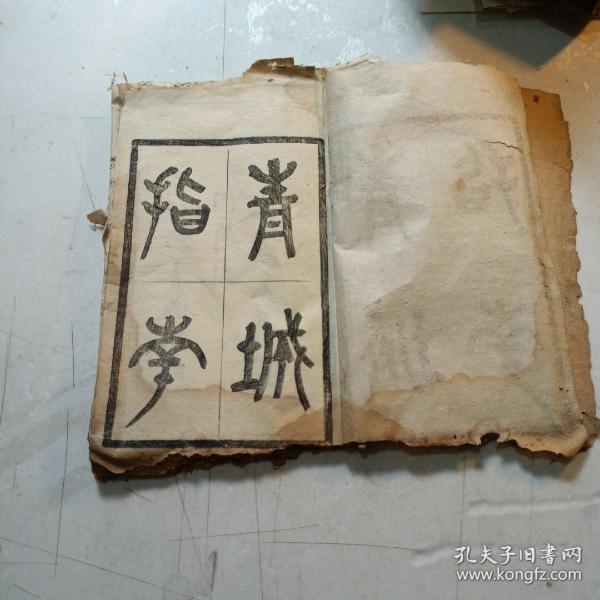 青城
指南
孔夫子旧书网
www.kongfz.com